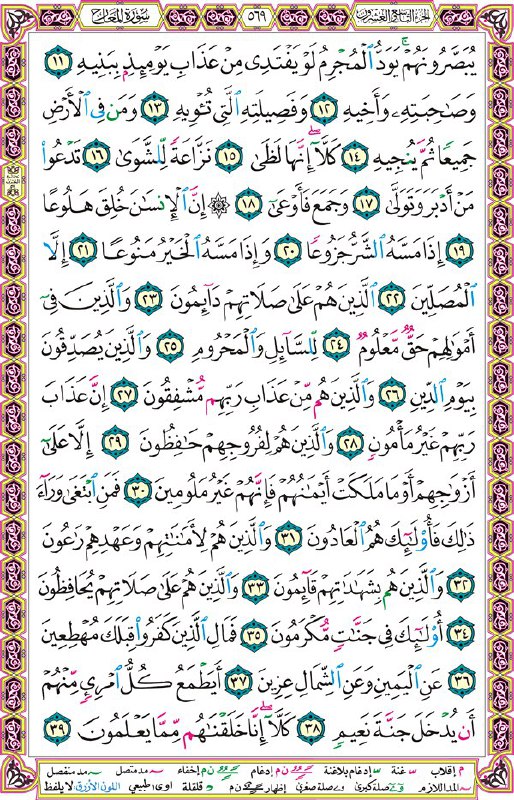 سُورَةُ المَعَارِجِ ٥٦٩ الجُزءُ التَّاسِعُ وَالعِشرُونَ
يُبَصَّرُونَهُمْ ۚ يَوَدُّ ٱلْمُجْرِمُ لَوْ يَفْتَدِى مِنْ عَذَابِ يَوْمِئِذٍۭ بِبَنِيهِ ١١
وَصَٰحِبَتِهِۦ وَأَخِيهِ ١٢ وَفَصِيلَتِهِ ٱلَّتِى تُـْٔوِيهِ ١٣ وَمَن فِى ٱلْأَرْضِ
جَمِيعًا ثُمَّ يُنجِيهِ ١٤ كَلَّآ ۖ إِنَّهَا لَظَىٰ ١٥ نَزَّاعَةً لِّلشَّوَىٰ ١٦ تَدْعُوا۟
مَنْ أَدْبَرَ وَتَوَلَّىٰ ١٧ وَجَمَعَ فَأَوْعَىٰٓ ١٨ ۞ إِنَّ ٱلْإِنسَٰنَ خُلِقَ هَلُوعًا
١٩ إِذَا مَسَّهُ ٱلشَّرُّ جَزُوعًا ٢٠ وَإِذَا مَسَّهُ ٱلْخَيْرُ مَنُوعًا ٢١ إِلَّا
ٱلْمُصَلِّينَ ٢٢ ٱلَّذِينَ هُمْ عَلَىٰ صَلَاتِهِمْ دَآئِمُونَ ٢٣ وَٱلَّذِينَ فِىٓ
أَمْوَٰلِهِمْ حَقٌّ مَّعْلُومٌ ٢٤ لِّلسَّآئِلِ وَٱلْمَحْرُومِ ٢٥ وَٱلَّذِينَ يُصَدِّقُونَ
بِيَوْمِ ٱلدِّينِ ٢٦ وَٱلَّذِينَ هُم مِّنْ عَذَابِ رَبِّهِم مُّشْفِقُونَ ٢٧ إِنَّ عَذَابَ
رَبِّهِمْ غَيْرُ مَأْمُونٍ ٢٨ وَٱلَّذِينَ هُمْ لِفُرُوجِهِمْ حَٰفِظُونَ ٢٩ إِلَّا عَلَىٰٓ
أَزْوَٰجِهِمْ أَوْ مَا مَلَكَتْ أَيْمَٰنُهُمْ فَإِنَّهُمْ غَيْرُ مَلُومِينَ ٣٠ فَمَنِ ٱبْتَغَىٰ وَرَآءَ
ذَٰلِكَ فَأُو۟لَٰٓئِكَ هُمُ ٱلْعَادُونَ ٣١ وَٱلَّذِينَ هُمْ لِأَمَٰنَٰتِهِمْ وَعَهْدِهِمْ رَٰعُونَ
٣٢ وَٱلَّذِينَ هُم بِشَهَٰدَٰتِهِمْ قَآئِمُونَ ٣٣ وَٱلَّذِينَ هُمْ عَلَىٰ صَلَاتِهِمْ يُحَافِظُونَ
٣٤ أُو۟لَٰٓئِكَ فِى جَنَّٰتٍ مُّكْرَمُونَ ٣٥ فَمَالِ ٱلَّذِينَ كَفَرُوا۟ قِبَلَكَ مُهْطِعِينَ
٣٦ عَنِ ٱلْيَمِينِ وَعَنِ ٱلشِّمَالِ عِزِينَ ٣٧ أَيَطْمَعُ كُلُّ ٱمْرِئٍ مِّنْهُمْ
أَن يُدْخَلَ جَنَّةَ نَعِيمٍ ٣٨ كَلَّآ ۖ إِنَّا خَلَقْنَٰهُم مِّمَّا يَعْلَمُونَ ٣٩
م إقلاب س غنة إدغام بلاغنة ن م إدغام ن م إخفاء مد متصل مد منفصل
المد اللازم صلة كبرى صلة صغرى إظهار ن م قلقلة اوى طبيعي اللون الأزرق لا يلفظ